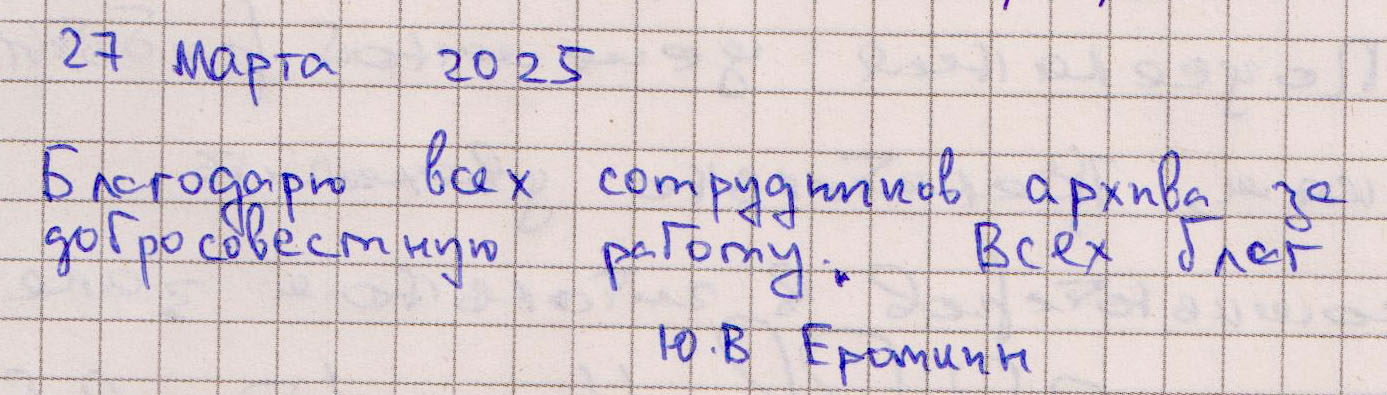 27 Марта 2025
Благодарю всех сотрудников архива за
добросовестную работу. Всех благ
Ю.В Еропкин